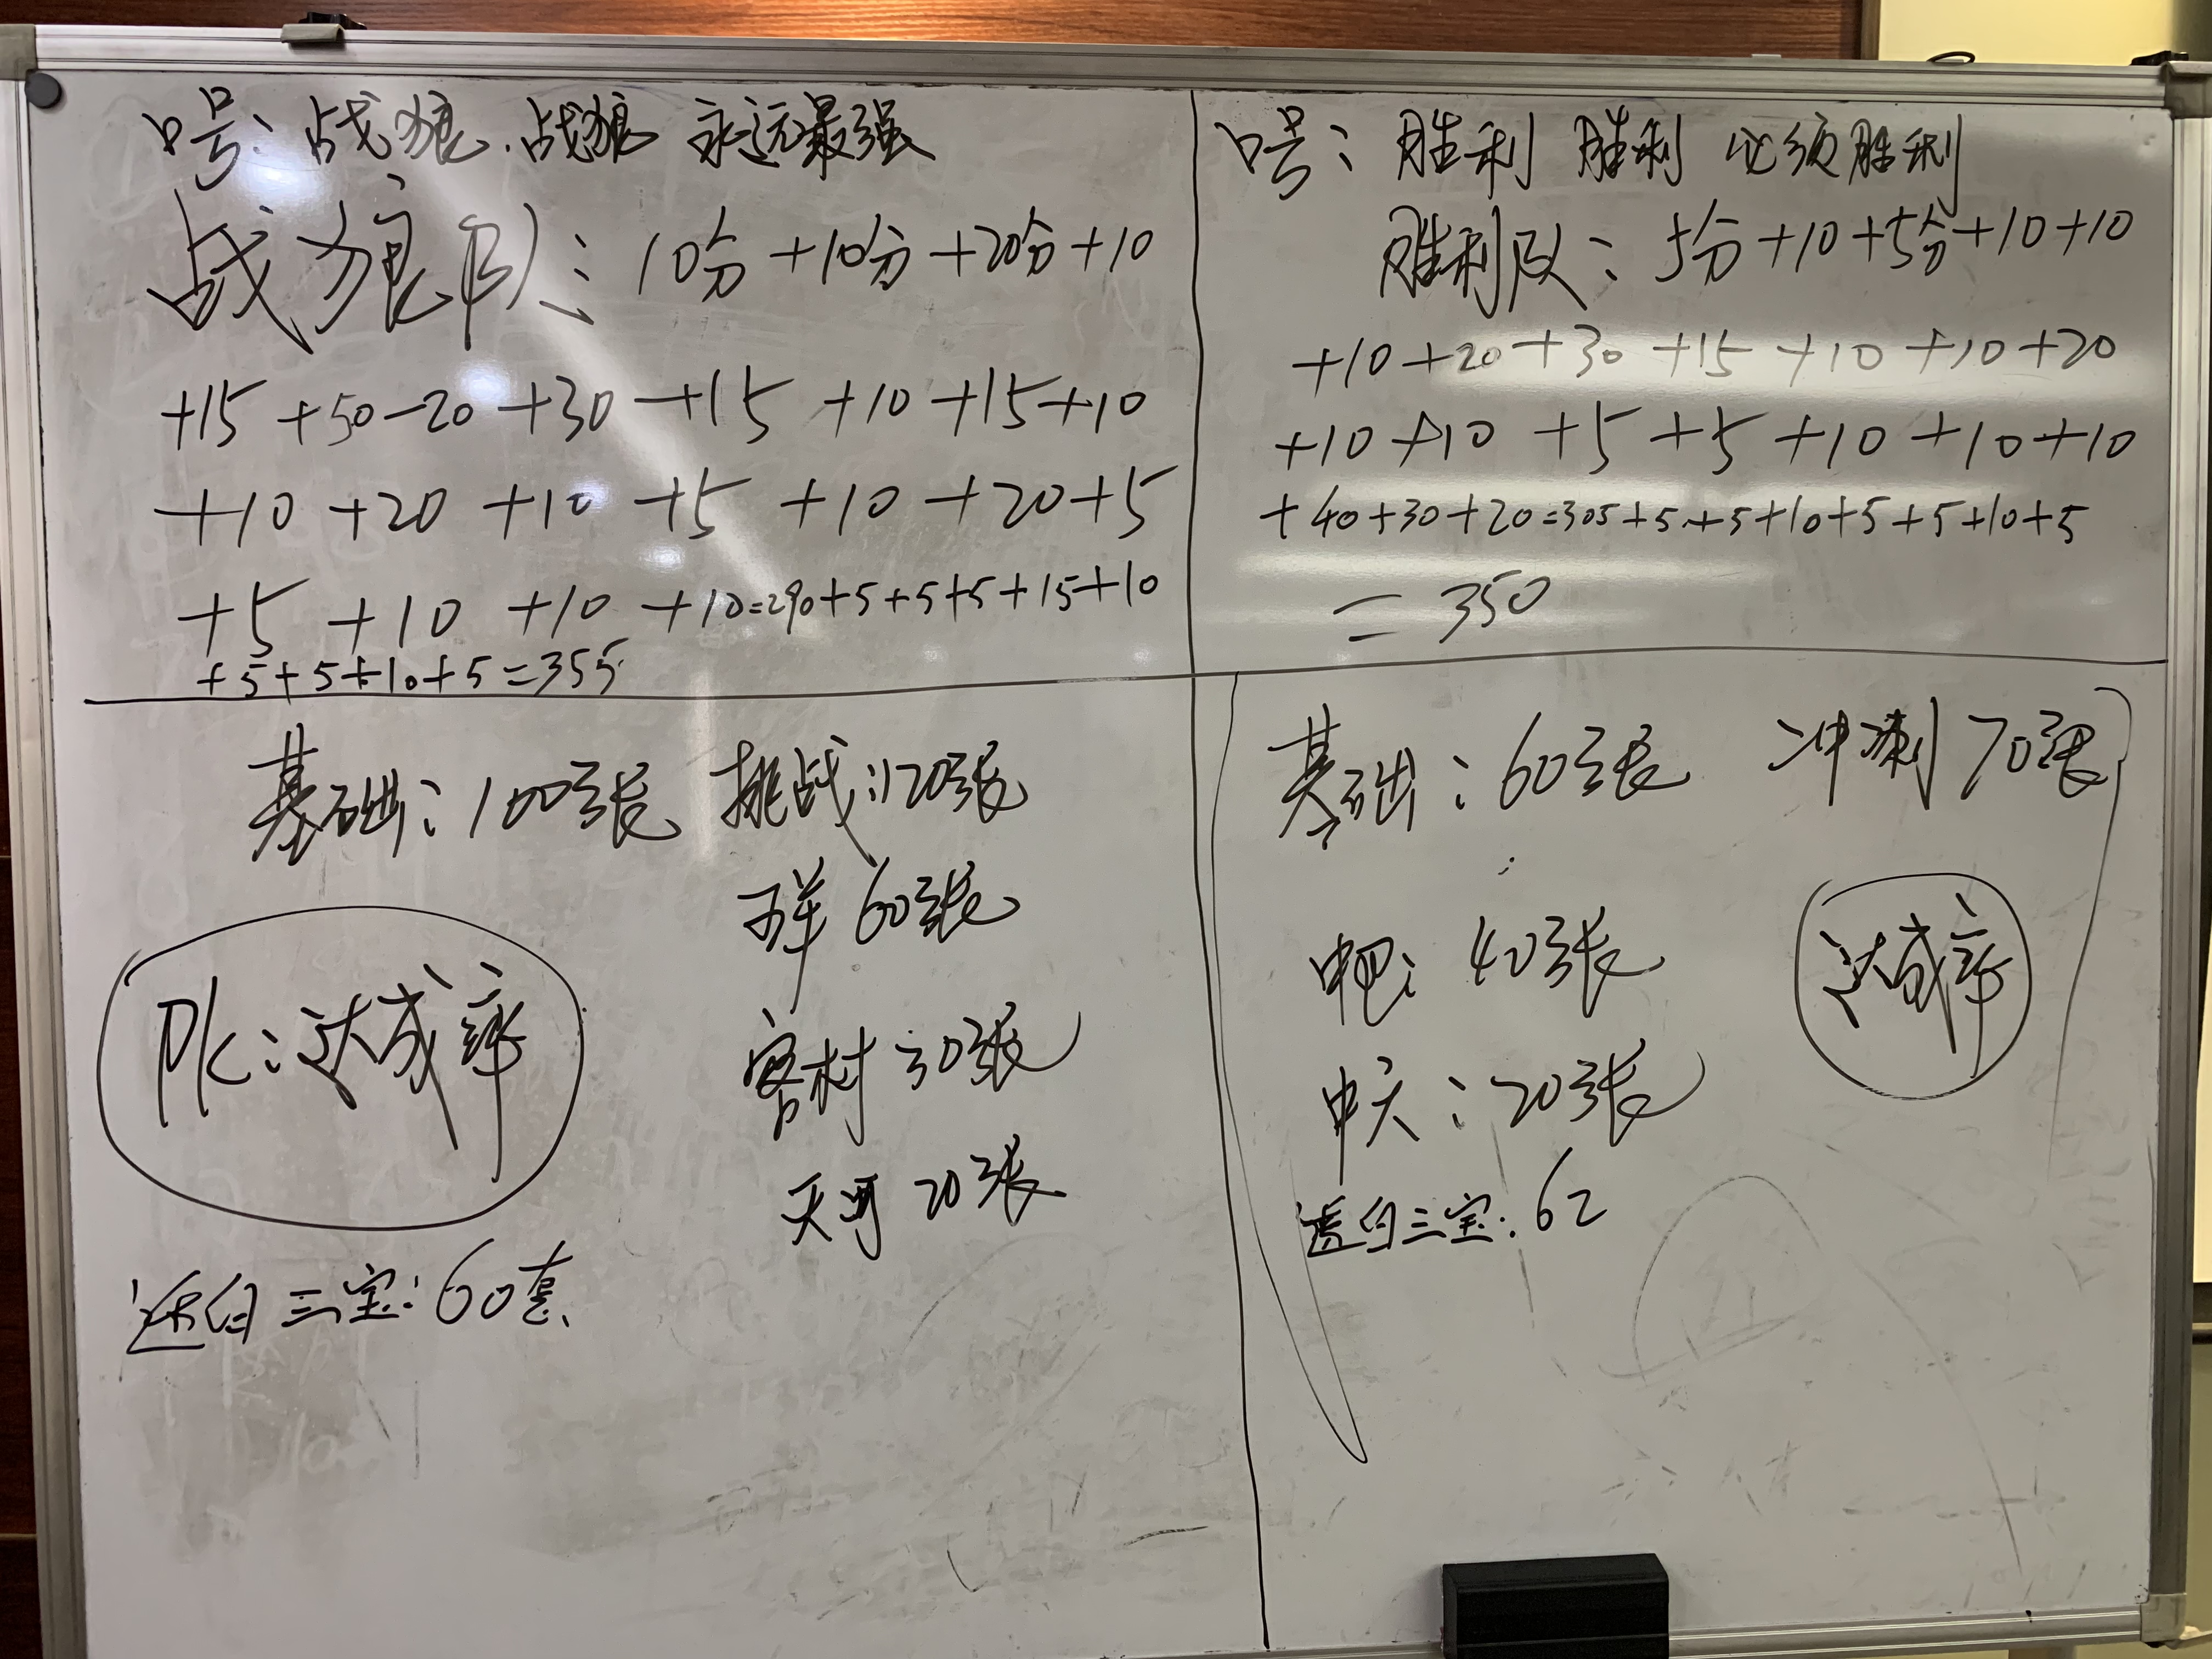 口号：战狼.战狼 永远最强
战狼队：10分+10分+20分+10
+15 +50-20 +30 +15 +10 +15+10
+10 +20 +10 +5 +10 +20+5
+5 +10 +10 +10=290+5+5+5+15+10
+5+5+10+5=355
口号：胜利 胜利 必须胜利
胜利队：5分+10+5分+10+10
+10+20+30+15+10+10+20
+10+10+5+5+10+10+10
+40+30+20=305+5+5+10+5+5+10+5
=350
基础：100张 挑战：120张
60张
PK：达成率
客村 30张
天河 20张
透白三宝：60套
基础：60张 冲刺70张
40张
达成率
中六：20张
透白三宝：62